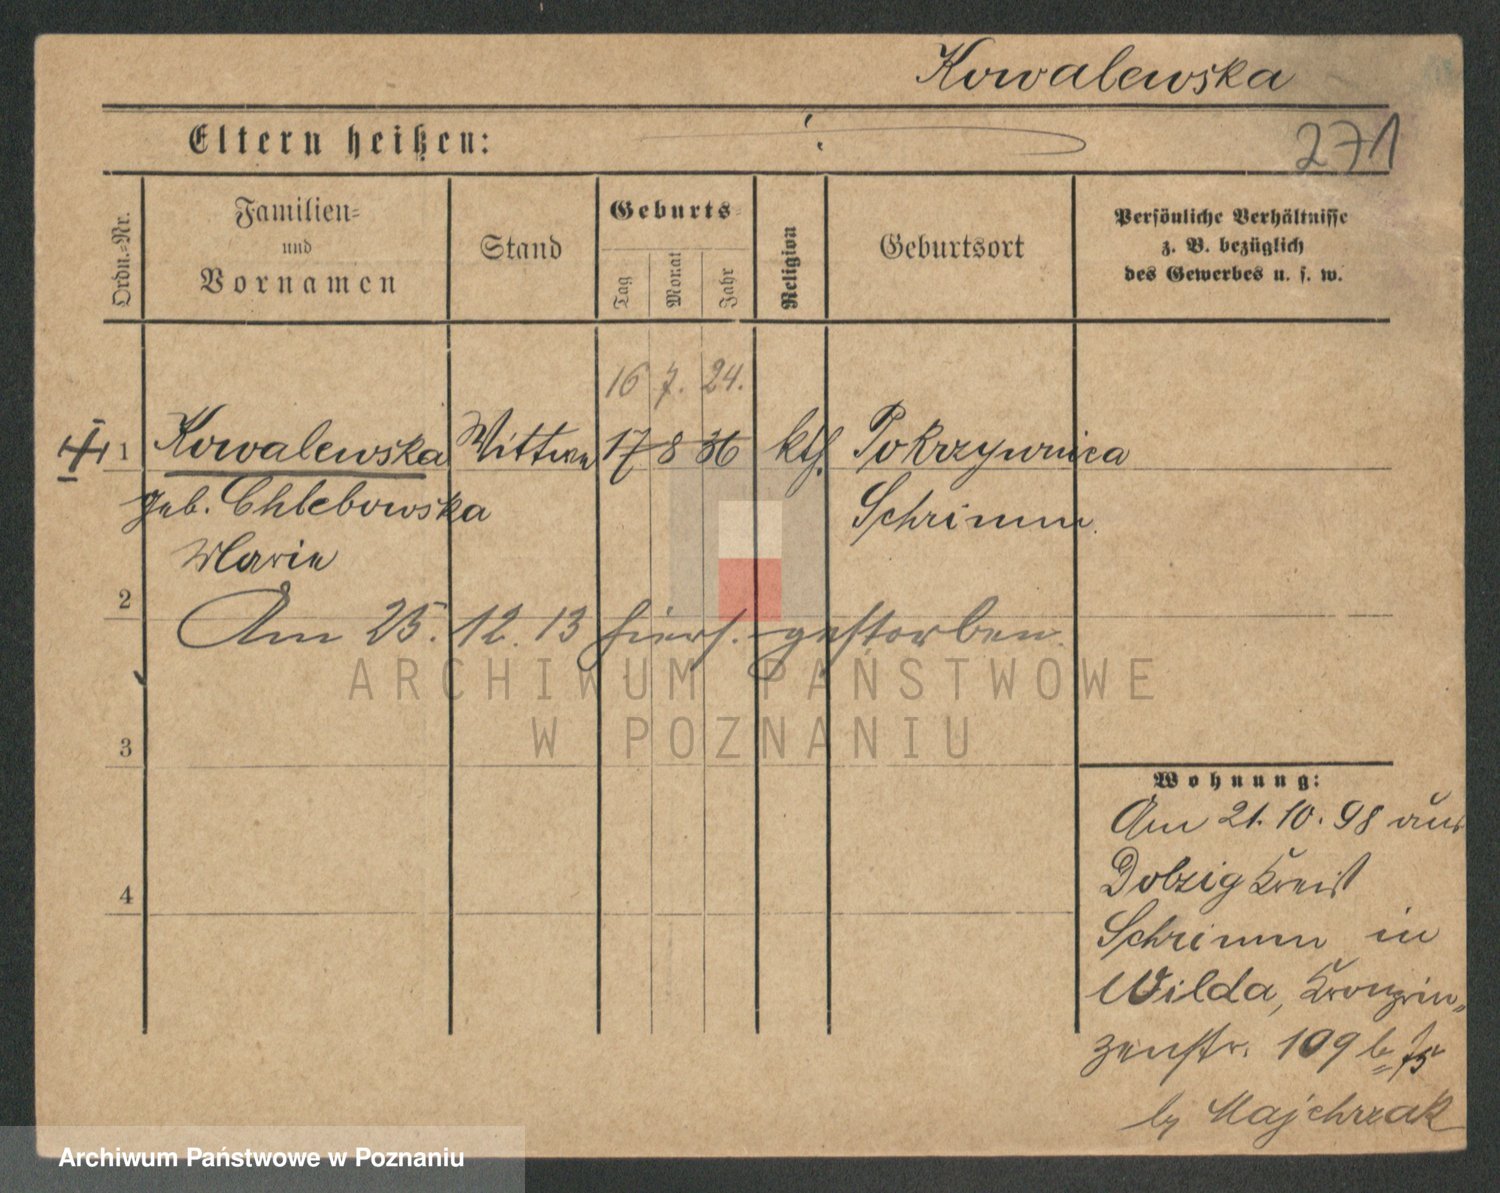 Kowalewska
271
Eltern heißen:
Ordn.-Nr.
Familien-
und
Vornamen
Stand
Geburts-
Tag
Monat
Jahr
Religion
Geburtsort
Persönliche Verhältnisse
z. B. bezüglich
des Gewerbes u. s. w.
16 7. 24.
1 Kowalewska Wittwe 17 8 36 kth. Pokrzywnica
geb. Chlebowska Schrimm.
Marie
2
Am 25. 12. 13 hiers. gestorben.
3
4
Wohnung:
Am 21. 10. 98 aus
Dolzig Kreis
Schrimm in
Wilda, Kronprin-
zenstr. 109 b
by Majchrzak
ARCHIWUM PAŃSTWOWE
W POZNANIU
Archiwum Państwowe w Poznaniu